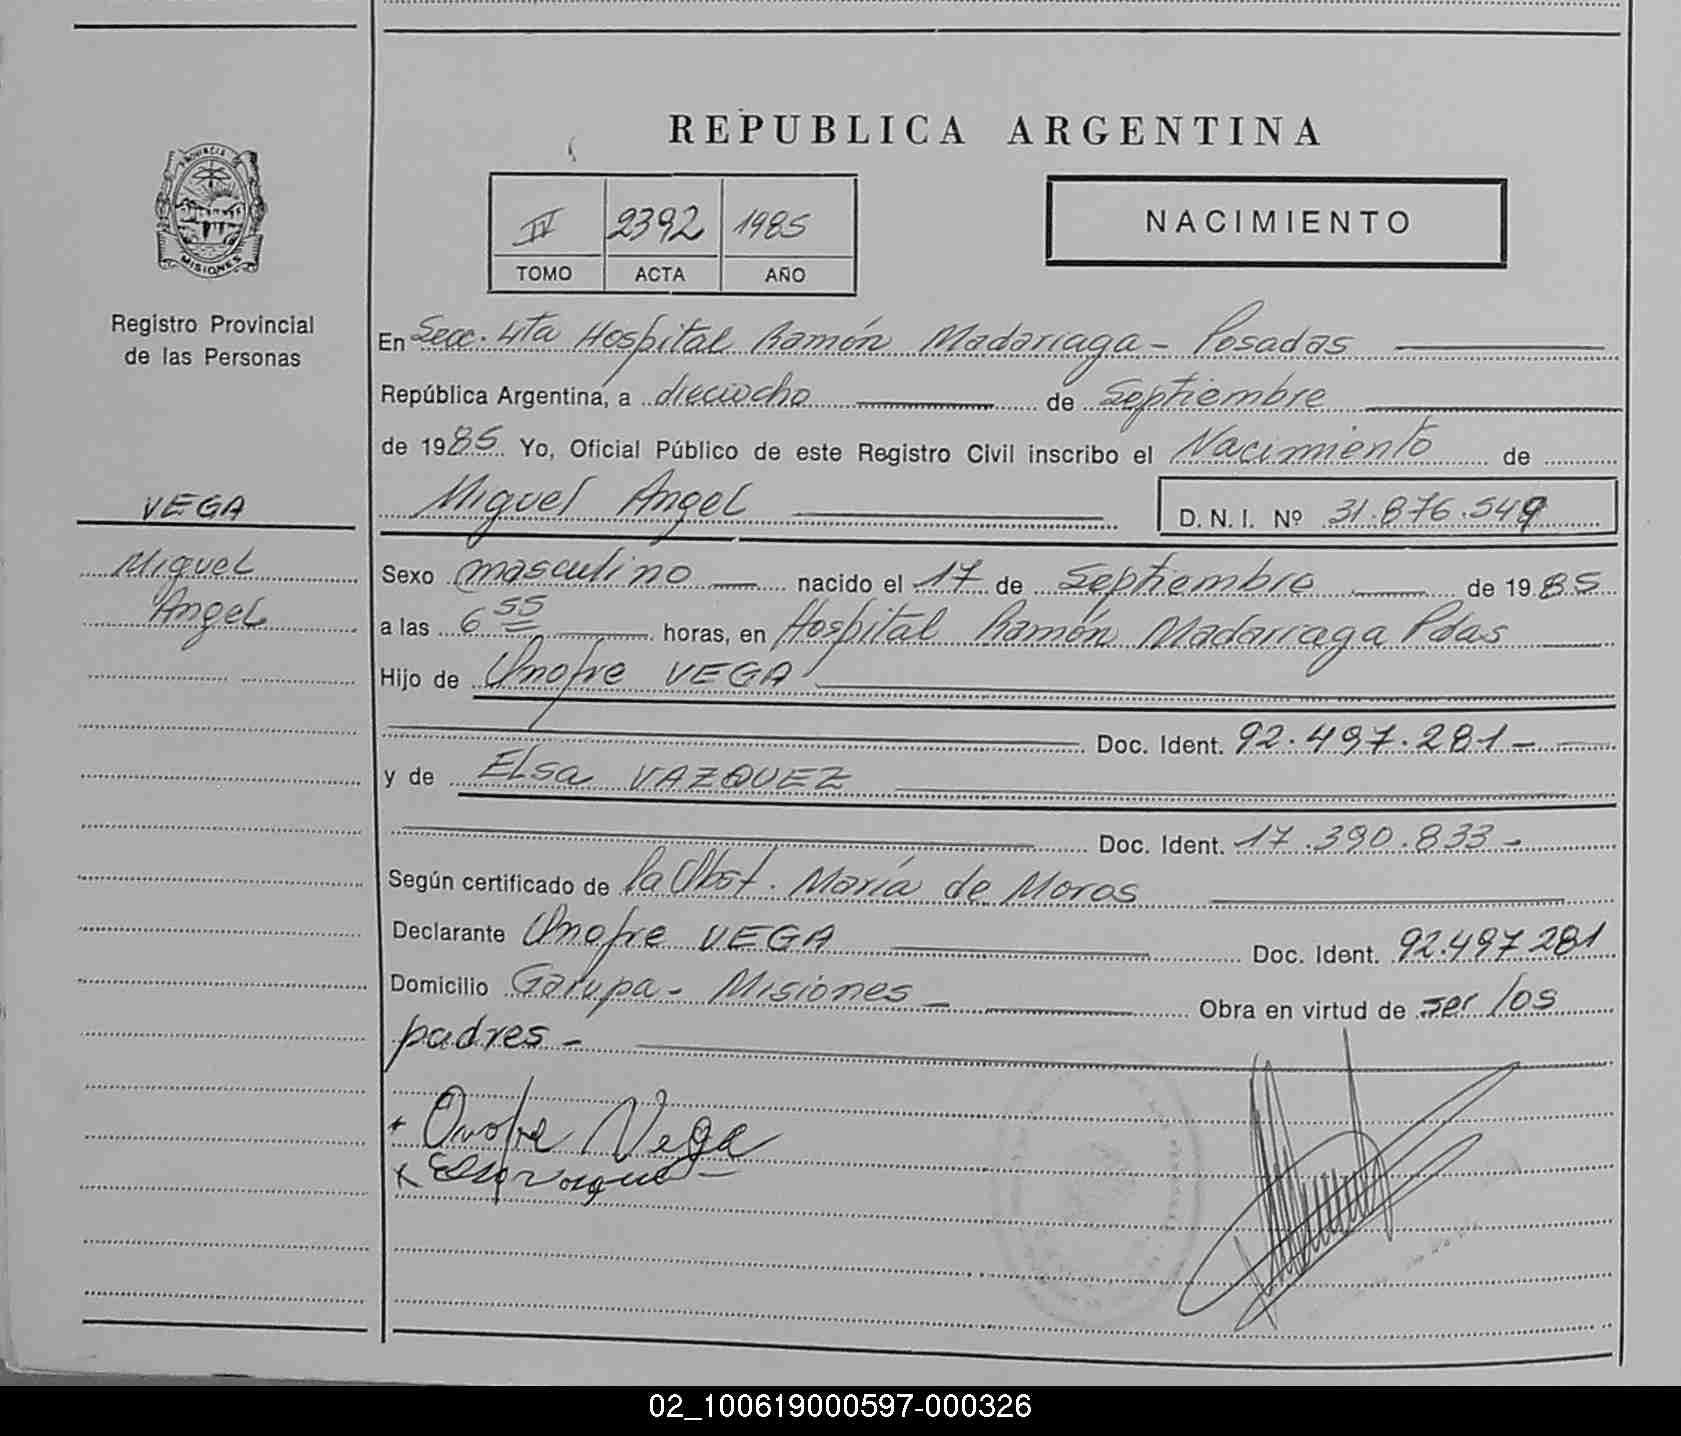 REPUBLICA ARGENTINA
PROVINCIA
MISIONES
Registro Provincial
de las Personas
IV 2392 1985
TOMO ACTA AÑO
NACIMIENTO
En Secc. 4ta Hospital Ramón Madariaga - Posadas
República Argentina, a dieciocho de Septiembre
de 1985 Yo, Oficial Público de este Registro Civil inscribo el Nacimiento de
Miguel Angel D. N. I. Nº 31.876.549
VEGA
Miguel
Angel
Sexo masculino nacido el 17 de Septiembre de 1985
a las 6 55 horas, en Hospital Ramón Madariaga Pdas
Hijo de Onofre VEGA
Doc. Ident. 92.497.281 -
y de Elsa VAZQUEZ
Doc. Ident. 17.390.833 -
Según certificado de la Obst. María de Moros
Declarante Onofre VEGA Doc. Ident. 92.497 281
Domicilio Garupa - Misiones - Obra en virtud de ser los
padres -
+ Onofre Vega
x Elsa Vazquez
02_100619000597-000326